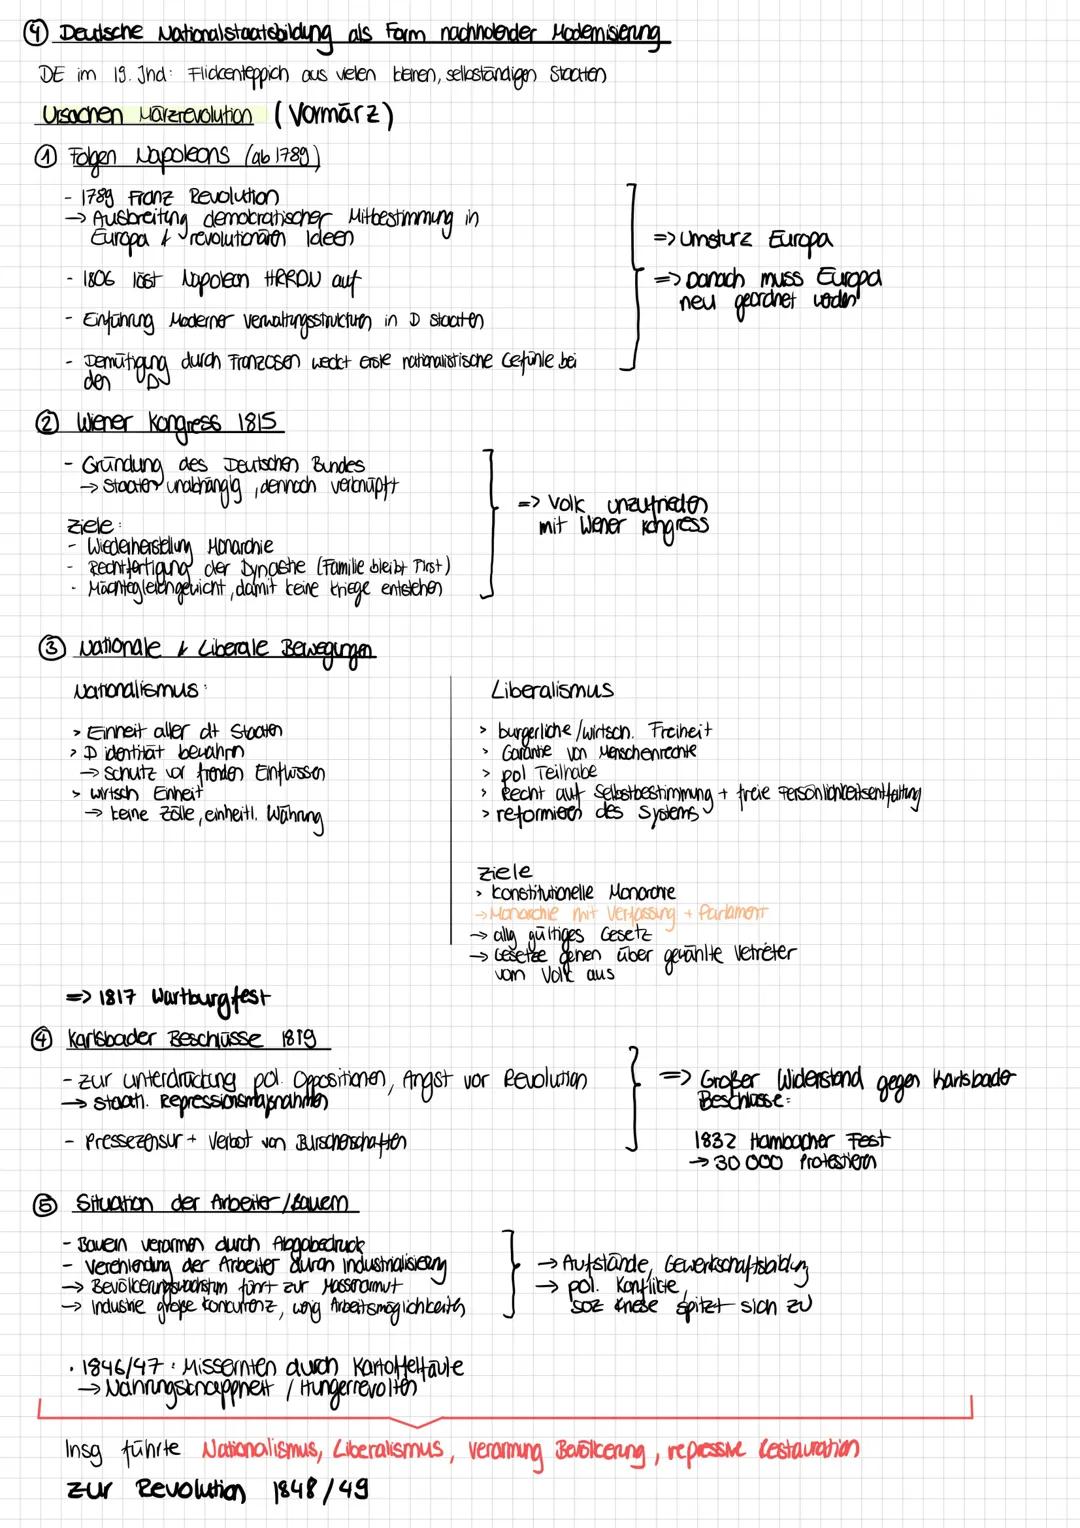 ④ Deutsche Nationalstaatsbildung als Form nachholender Modernisierung
DE im 19. Jhd: Flickenteppich aus vielen kleinen, selbständigen Staaten
Ursachen Märzrevolution (Vormärz)
① Folgen Napoleons (ab 1789)
- 1789 Franz Revolution
→ Ausbreitung demokratischer Mitbestimmung in
Europa & revolutionären Ideen
- 1806 löst Napoleon HRRDN auf
- Einführung Moderner Verwaltungsstruktur in D Staaten
- Demütigung durch Franzosen weckt erste nationalistische Gefühle bei
den D
=> Umsturz Europa
=> Danach muss Europa
neu geordnet werden
② Wiener Kongress 1815
- Gründung des Deutschen Bundes
→ Staaten unabhängig, dennoch verknüpft
Ziele:
- Wiederherstellung Monarchie
- Rechtfertigung der Dynastie (Familie bleibt Fürst)
- Mächtegleichgewicht, damit keine Kriege entstehen
=> Volk unzufrieden
mit Wiener Kongress
③ Nationale & Liberale Bewegungen
Nationalismus:
> Einheit aller dt Staaten
> D identität bewahren
→ Schutz vor fremden Einflüssen
> wirtsch Einheit
→ keine Zölle, einheitl. Währung
Liberalismus
> bürgerliche/wirtsch. Freiheit
> Garantie von Menschenrechte
> pol Teilhabe
> Recht auf Selbstbestimmung + freie Persönlichkeitsentfaltung
> reformieren des Systems
Ziele
> konstitutionelle Monarchie
→ Monarchie mit Verfassung + Parlament
→ allg gültiges Gesetz
→ Gesetze gehen über gewählte Vetreter
vom Volk aus
=> 1817 Wartburgfest
④ Karlsbader Beschlüsse 1819
- zur unterdrückung pol. Oppositionen, Angst vor Revolution
→ staatl. Repressionsmaßnahmen
- Pressezensur + Verbot von Burschenschaften
=> Großer Widerstand gegen Karlsbader
Beschlüsse:
1832 Hambacher Fest
→ 30 000 Protestieren
⑤ Situation der Arbeiter/Bauern
- Bauern verarmen durch Abgabedruck
- Verelendung der Arbeiter durch Industrialisierung
→ Bevölkerungswachstum führt zur Massenarmut
→ Industrie große Konkurrenz, wenig Arbeitsmöglichkeiten
→ Aufstände, Gewerkschaftsbildung
→ pol. Konflikte,
soz Kriese spitzt sich zu
· 1846/47: Missernten durch Kartoffelfäule
→ Nahrungsknappheit / Hungerrevolten
Insg führte Nationalismus, Liberalismus, verarmung Bevölkerung, repressive Restauration
zur Revolution 1848/49